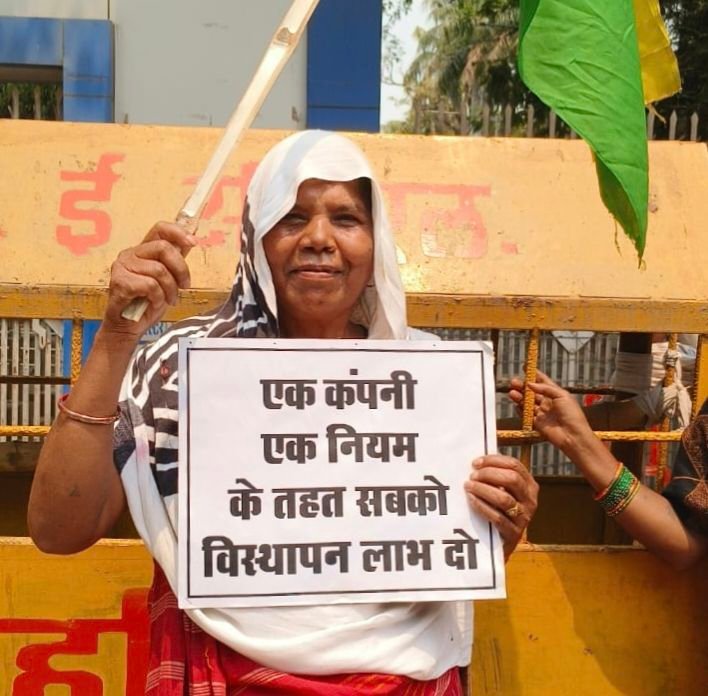 ई
एक कंपनी
एक नियम
के तहत सबको
विस्थापन लाभ दो